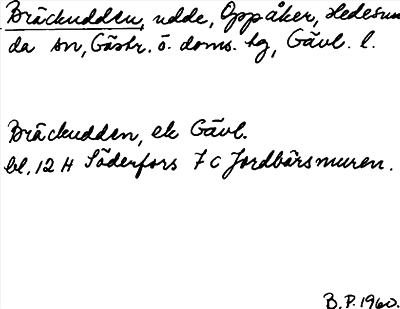 Bräckudden, udde, Oppåker, Hedesun
da sn, Gästr. ö. doms. hg, Gävl. l.
Bräckudden, ek Gävl.
bl. 12 H Söderfors 7 c Jordbärsmuren.
B.P. 1960.